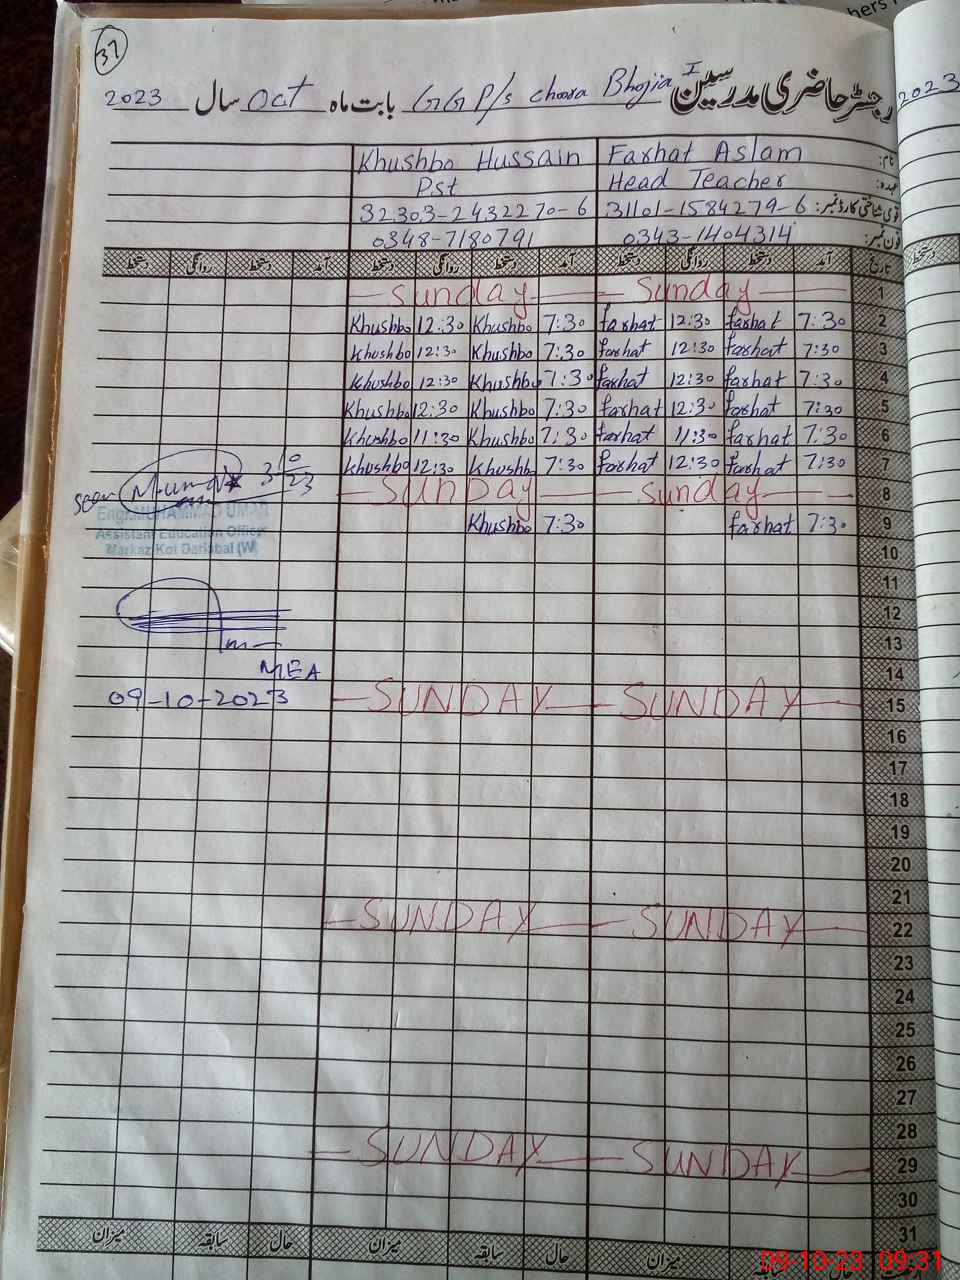 37
رجسٹر حاضری مدرسین GG P/s choora Bhojia I بابت ماہ Oct سال 2023
2023
نام: Farhat Aslam Khushbo Hussain
عہدہ: Head Teacher Pst
قومی شناختی کارڈ نمبر: 31101-1584279-6 32303-2432270-6
فون نمبر: 0343-1404314 0348-7180791
تاریخ آمد دستخط روانگی دستخط آمد دستخط روانگی دستخط آمد دستخط روانگی دستخط
دستخط
1 Sunday Sunday
2 7:30 farhat 12:30 farhat 7:30 Khushbo 12:30 Khushbo
3 7:30 farhat 12:30 farhat 7:30 Khushbo 12:30 Khushbo
4 7:30 farhat 12:30 farhat 7:30 Khushbo 12:30 Khushbo
5 7:30 farhat 12:30 farhat 7:30 Khushbo 12:30 Khushbo
6 7:30 farhat 11:30 farhat 7:30 Khushbo 11:30 Khushbo
7 7:30 farhat 12:30 farhat 7:30 Khushbo 12:30 Khushbo
8 Sunday Sunday
9 7:30 farhat 7:30 Khushbo
10
11
12
13
14
15 SUNDAY SUNDAY
16
17
18
19
20
21
22 SUNDAY SUNDAY
23
24
25
26
27
28
29 SUNDAY SUNDAY
30
31
seen
3/10/23
Engr.MUHAMMAD UMAR
Assistant Education Officer
Markaz Kot Darbabal (W)
MEA
09-10-2023
میزان سابقہ حال میزان سابقہ حال میزان سابقہ
09-10-23 09:31